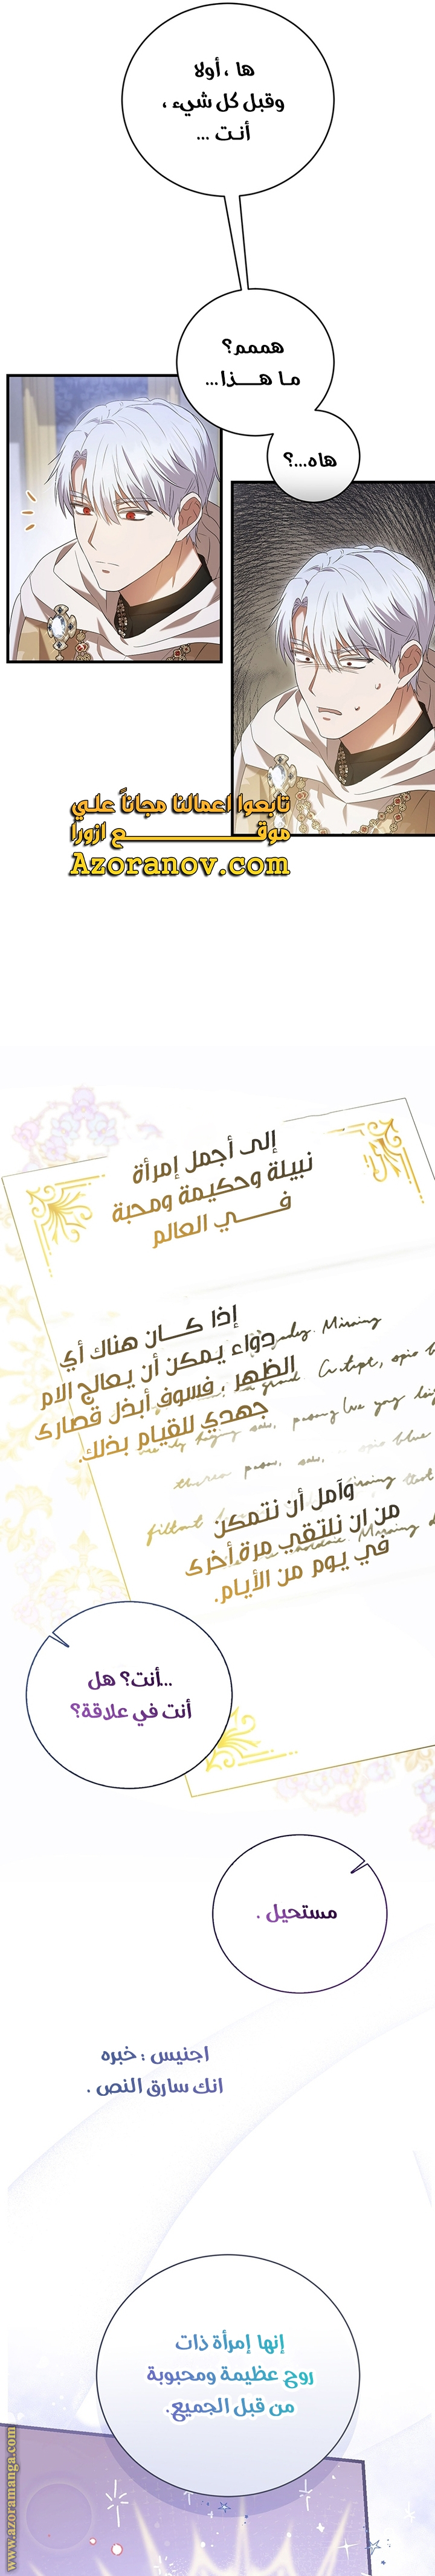 ها ، أولا
وقبل كل شيء ،
أنت ...
هممم؟
ما هـــذا...
هاه...؟
تابعوا اعمالنا مجاناً علي
موقـــــــــــع ازورا
Azoranov.com
إلى أجمل إمرأة
نبيلة وحكيمة ومحبة
فـــــي العالم
إذا كـــان هناك أي
دواء يمكن أن يعالج الام
الظهر ، فسوف أبذل قصارى
جهدي للقيام بذلك.
وآمل أن نتمكن
من ان نلتقي مرة أخرى
في يوم من الأيام.
...أنت؟ هل
أنت في علاقة؟
مستحيل .
اجنيس : خبره
انك سارق النص .
إنها إمرأة ذات
روح عظيمة ومحبوبة
من قبل الجميع.
www.azoramanga.com